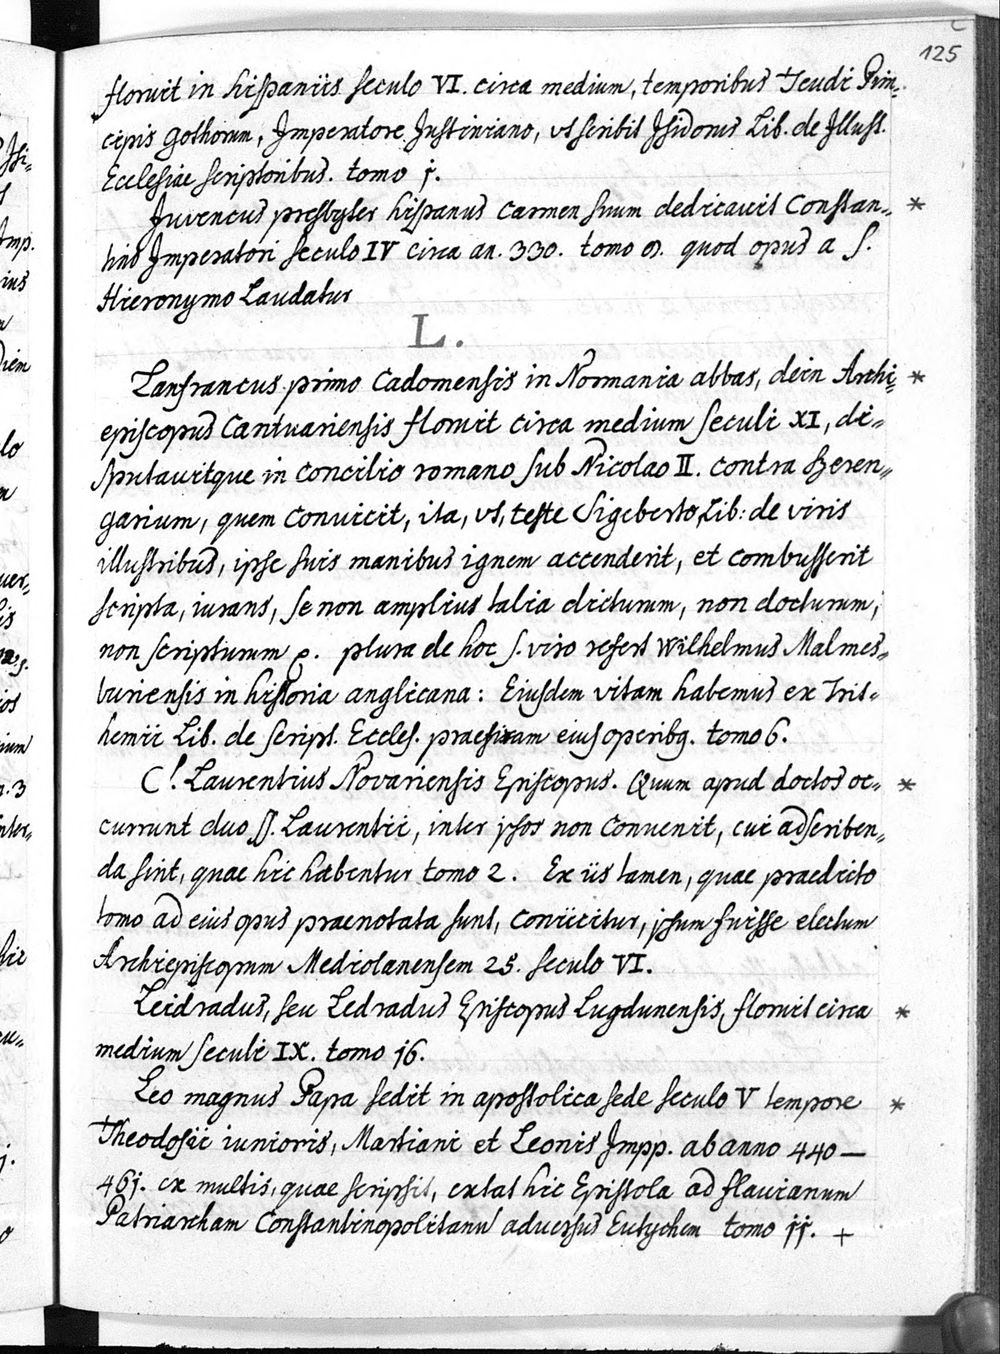 125
floruit in hispaniis seculo VI. circa medium, temporibus Teudi Prin-
cipis Gothorum, Imperatore Justiniano, ut scribit Isidorus Lib. de Illust.
Ecclesiae scriptoribus. tomo j.
Juvencus presbyter hispanus carmen suum dedicavit Constan- *
tino Imperatori seculo IV circa an. 330. tomo 9. quod opus a S.
Hieronymo Laudatur
L.
Lanfrancus primo Cadomensis in Normania abbas, dein Archi- *
episcopus Cantuariensis floruit circa medium seculi XI, di-
sputavitque in concilio romano sub Nicolao II. contra Beren-
garium, quem convicit, ita, ut, teste Sigeberto, Lib: de viris
illustribus, ipse suis manibus ignem accenderit, et combusserit
scripta, iurans, se non amplius talia dicturum, non docturum,
non scripturum &. plura de hoc S. viro refert Wilhelmus Malmes-
buriensis in historia anglicana: Eiusdem vitam habemus ex Trit-
hemii Lib. de script. Eccles. praefixam eius operibq. tomo 6.
C! Laurentius Novariensis Episcopus. Quum apud doctos oc- *
currunt duo SS. Laurentii, inter ipsos non convenit, cui adscriben-
da sint, quae hic habentur tomo 2. Ex iis tamen, quae praedicto
tomo ad eius opus praenotata sunt, coniicitur, ipsum fuisse electum
Archiepiscopum Mediolanensem 25. seculo VI.
Leidradus, seu Ledradus Episcopus Lugdunensis, floruit circa *
medium seculi IX. tomo j6.
Leo magnus Papa sedit in apostolica sede seculo V tempore *
Theodosii iunioris, Martiani et Leonis Impp. ab anno 440 —
46j. ex multis, quae scripsit, extat hic Epistola ad flavianum
Patriarcham Constantinopolitanu adversus Eutychem tomo jj. +